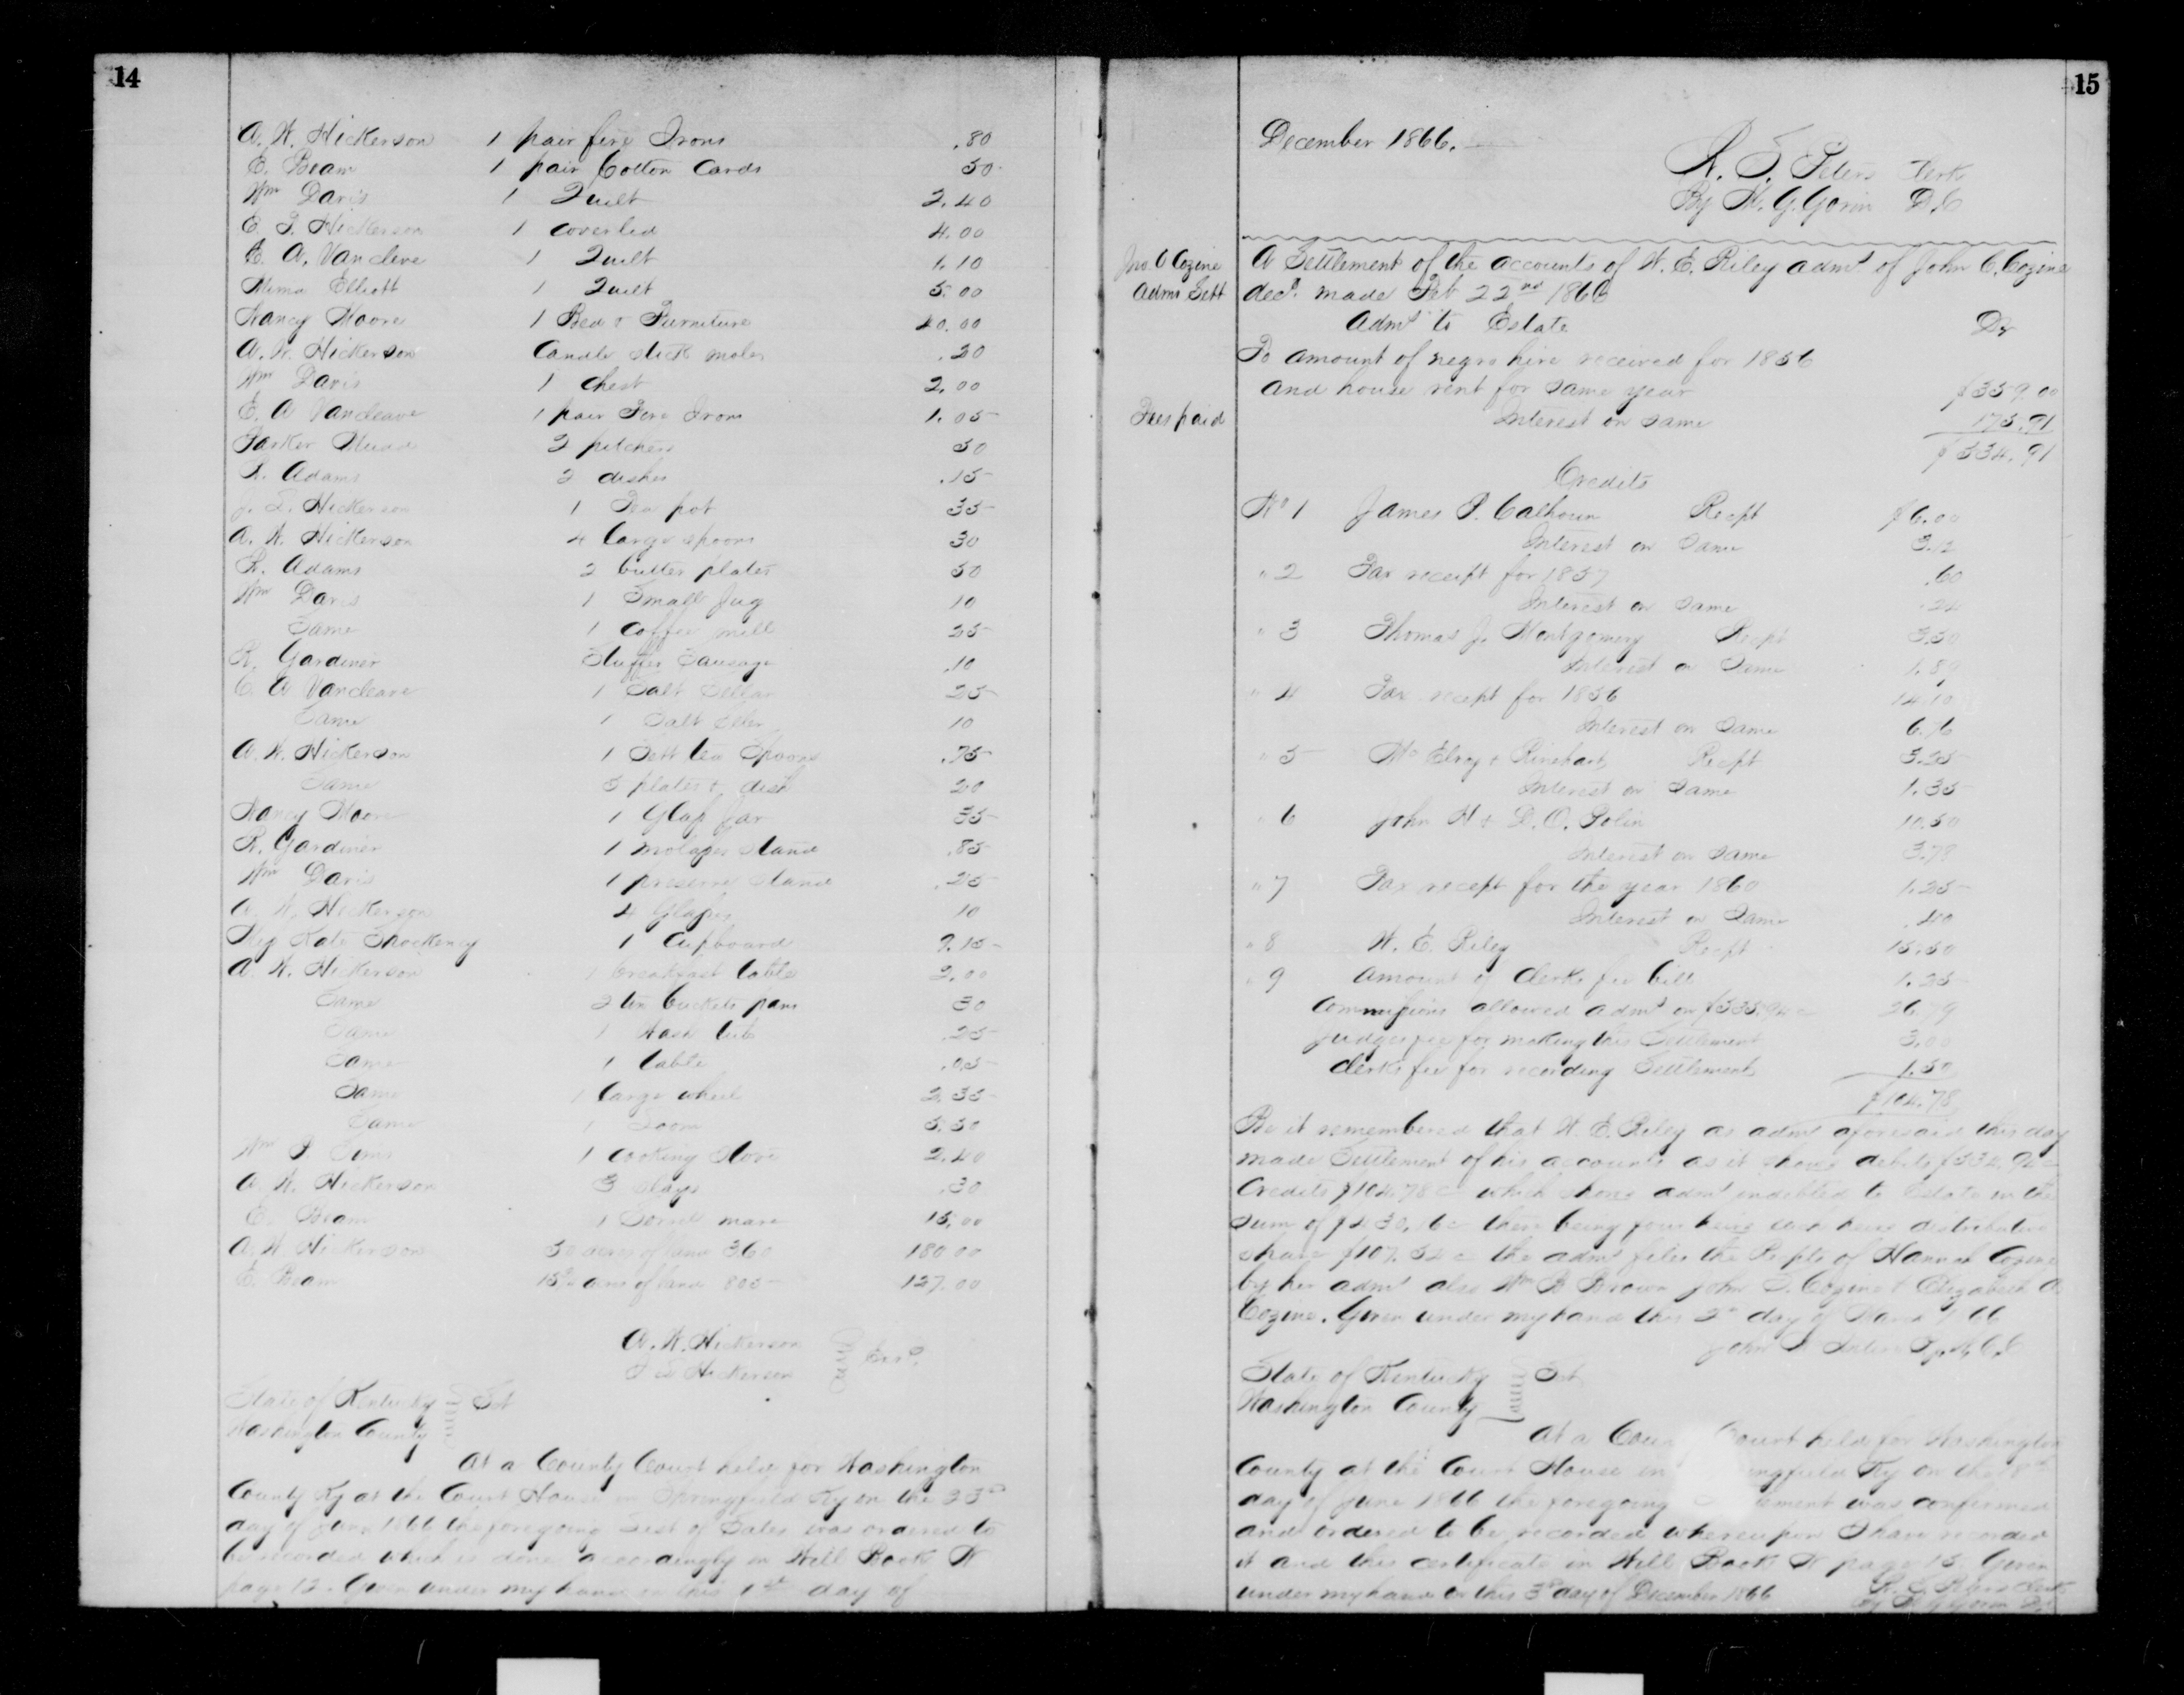 14
A. W. Hickerson 1 pair fire Irons .80
E. Beam 1 pair Cotton Cards 50
Wm Davis 1 Quilt 2.40
E. T. Hickerson 1 coverlid 4.00
E. A. Vancleve 1 Quilt 1.10
Mima Elliott 1 Quilt 5.00
Nancy Moore 1 Bed & Furniture 40.00
A. W. Hickerson Candle stick moles .20
Wm Davis 1 chest 2.00
E. A Vancleave 1 pair Fire Irons 1.05
Parker Mudd 2 pitchers 50
R. Adams 2 dishes .15
J. S. Hickerson 1 Tea pot 35
A. W. Hickerson 4 large spoons 30
R. Adams 2 butter plates 50
Wm Davis 1 Small Jug 10
Same 1 coffee mill 25
R. Gardiner Stuffer Sausage .10
E A Vancleave 1 Salt Cellar 25
Same 1 Salt Celler 10
A. W. Hickerson 1 Sett tea Spoons .75
Same 5 plates & dish 20
Nancy Moore 1 Glass Jar 35
R. Gardiner 1 molasses stand .85
Wm Davis 1 preserve stand .25
A. W. Hickerson 4 Glasses 10
Kate Shockency 1 Cupboard 9.15
A. W. Hickerson 1 breakfast table 2.00
Same 2 tin buckets pans 30
Same 1 Wash tub .25
Same 1 table .05
Same 1 large wheel 2.35
Same 1 Loom 5.50
Wm P. Sims 1 cooking stove 2.40
A. W. Hickerson 3 slays .30
E. Beam 1 Sorrel mare 15.00
A. W. Hickerson 50 acres of land 360 180.00
E. Beam acres of land 805 127.00
A. W. Hickerson
J S Hickerson
State of Kentucky Sct
Washington County
At a County Court held for Washington
County Ky at the Court House in Springfield Ky on the
day of June 1866 the foregoing List of Sales was ordered to
be recorded which is done accordingly in Will Book
page 12. Given under my hand on this 1st day of
15
December 1866.
R. S. Peters Clerk
By M. G. Gorin D.C
Jno. C Cozine
Adms Sett
A Settlement of the accounts of W. E. Riley admr of John C. Cozine
decd. made Feb 22nd 1866
Admr to Estate Dr
To amount of negro hire received for 1856
and house rent for same year $359.00
Fees paid
Interest on same 175.91
$534.91
Credits
No 1 James P. Calhoun Recpt $6.00
Interest on Same 3.12
" 2 Tax receipt for 1857 .60
Interest on Same .24
" 3 Thomas J. Montgomery Recpt 3.50
Interest on Same 1.89
" 4 Tax recept for 1856 14.10
Interest on Same 6.76
" 5 McElroy & Rinehart Recpt 3.25
Interest on Same 1.35
" 6 John H & D. O. Polin 10.50
Interest on Same 3.78
" 7 Tax recept for the year 1860 1.25
Interest on Same .40
" 8 W. E. Riley Recpt 15.50
" 9 Amount of Clerks fee bill 1.25
Commissions allowed admr on 26.79
Judges fee for making this Settlement 3.00
Clerks fee for recording Settlement 1.50
$104.78
Be it remembered that W. E. Riley as admr aforesaid this day
made Settlement of his accounts as it shows debits
Credits $104.78 c which shows admr indebted to Estate in the
Sum of $430.16 c there being four heirs each heirs distributive
share $107.52 c the admr files the Recpts of Hannah Cozine
by her admr also Wm B Brown John C. Cozine & Elizabeth A
Cozine. Given under my hand this day of March 1866
State of Kentucky Sct
Washington County
At a County Court held for Washington
County at the Court House in Springfield Ky on the
day of June 1866 the foregoing Settlement was confirmed
and ordered to be recorded whereupon I have recorded
it and this certificate in Will Book page 15 Given
under my hand on this 3d day of December 1866
R. S. Peters Clerk
By M G Gorin D.C